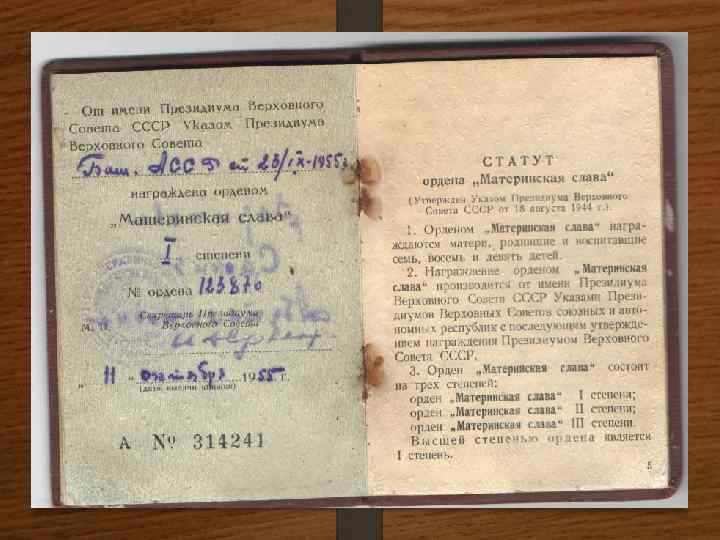 От имени Президиума Верховного
Совета СССР Указом Президиума
Верховного Совета
Баш. АССР от 23/IX-1955г
награждена орденом
„Материнская слава“
I степени
№ ордена 123870
Секретарь Президиума
Верховного Совета
М. П.
„ 11 “ октября 1955 г.
(дата выдачи книжки)
А № 314241
СТАТУТ
ордена „Материнская слава“
(Утвержден Указом Президиума Верховного
Совета СССР от 18 августа 1944 г.).
1. Орденом „Материнская слава“ награ-
ждаются матери, родившие и воспитавшие
семь, восемь и девять детей.
2. Награждение орденом „Материнская
слава“ производится от имени Президиума
Верховного Совета СССР Указами Прези-
диумов Верховных Советов союзных и авто-
номных республик с последующим утвержде-
нием награждения Президиумом Верховного
Совета СССР.
3. Орден „Материнская слава“ состоит
из трех степеней:
орден „Материнская слава“ I степени;
орден „Материнская слава“ II степени;
орден „Материнская слава“ III степени.
Высшей степенью ордена является
I степень.
5